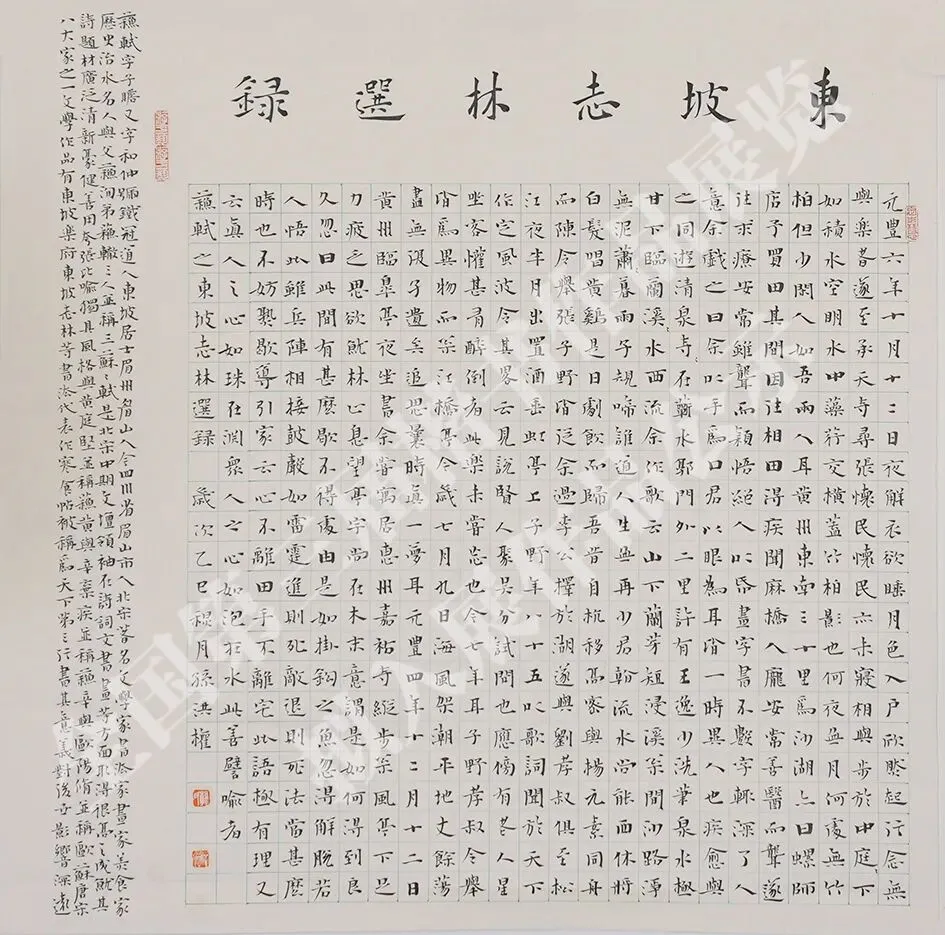 東坡志林選録
元豐六年十月十二日夜解衣欲睡月色入戸欣然起行念無
與樂者遂至承天寺尋張懷民懷民亦未寢相與步於中庭下
如積水空明水中藻荇交橫蓋竹柏影也何夜無月何處無竹
柏但少閑人如吾兩人耳黄州東南三十里爲沙湖亦曰螺師
店予買田其間因往相田得疾聞麻橋人龐安常善醫而聾遂
往求療安常雖聾而穎悟絕人以帋畫字書不數字輒深了人
意余戲之曰余以手爲口君以眼為耳皆一時異人也疾愈與
之同遊清泉寺在蘄水郭門外二里許有王逸少洗筆泉水極
甘下臨蘭溪水西流余作歌云山下蘭芽短浸溪松間沙路淨
無泥蕭暮雨子規啼誰道人生無再少君看流水尚能西休將
白髮唱黄鷄是日劇飲而歸吾昔自杭移高密與楊元素同舟
而陳令舉張子野皆從余過李公擇於湖遂與劉孝叔俱至松
江夜半月出置酒垂虹亭上子野年八十五以歌詞聞於天下
作定風波令其畧云見說賢人聚吳分試問也應傍有老人星
坐客懽甚有醉倒者此樂未嘗忘也今七年耳子野孝叔令舉
皆爲異物而松江橋亭今歲七月九日海風架潮平地丈餘蕩
盡無復孑遺矣追思曩時真一夢耳元豐四年十二月十二日
黄州臨臯亭夜坐書余嘗寓居惠州嘉祐寺縱步松風亭下足
力疲乏思欲就林止息望亭宇尚在木末意謂是如何得到良
久忽曰此間有甚麼歇不得處由是如掛鈎之魚忽得解脫若
人悟此雖兵陣相接鼓聲如雷霆進則死敵退則死法當甚麼
時也不妨熟歇導引家云心不離田手不離宅此語極有理又
云真人之心如珠在淵衆人之心如泡在水此善譬喻者
蘇軾之東坡志林選録 歲次乙巳穐月孫洪權
蘇軾字子瞻又字和仲號鐵冠道人東坡居士眉州眉山人今四川省眉山市人北宋著名文學家書法家畫家美食家
歷史治水名人與父蘇洵弟蘇轍三人並稱三蘇軾是北宋中期文壇領袖在詩詞文書畫等方面取得很高之成就其
詩題材廣泛清新豪健善用夸張比喻獨具風格與黄庭堅並稱蘇黄與辛棄疾並稱蘇辛與歐陽脩並稱歐蘇唐宋
八大家之一文學作品有東坡樂府東坡志林等書法代表作寒食帖被稱爲天下第三行書其意義對後世影響深遠